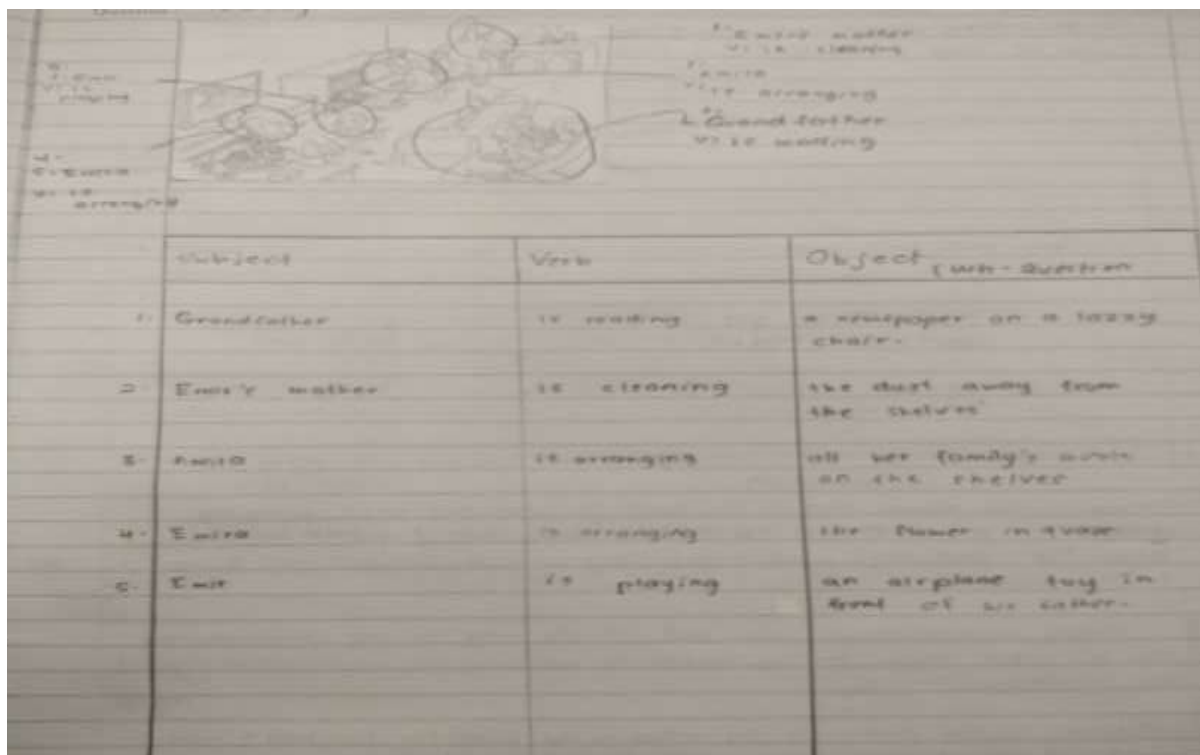 Emir's mother
V: is cleaning
Amira
V: is arranging
Grandfather
V: is reading
S: Emir
V: is
playing
4.
S: Emira
V: is
arranging
Subject
Verb
Object / Wh-Question
1. Grandfather
is reading
a newspaper on a lazzy
chair.
2. Emir's mother
is cleaning
the dust away from
the shelves
3. Amira
is arranging
all her family's
on the shelves
4. Emira
is arranging
the flower in a vase
5. Emir
is playing
an airplane toy in
front of his father.